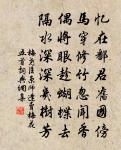 憶在鄱君舊國傍
馬穿修竹忽聞香
偶將眼趁蝴蝶去
隔水深深幾樹芳
梅堯臣京師逢賣梅花
五首詞典網集